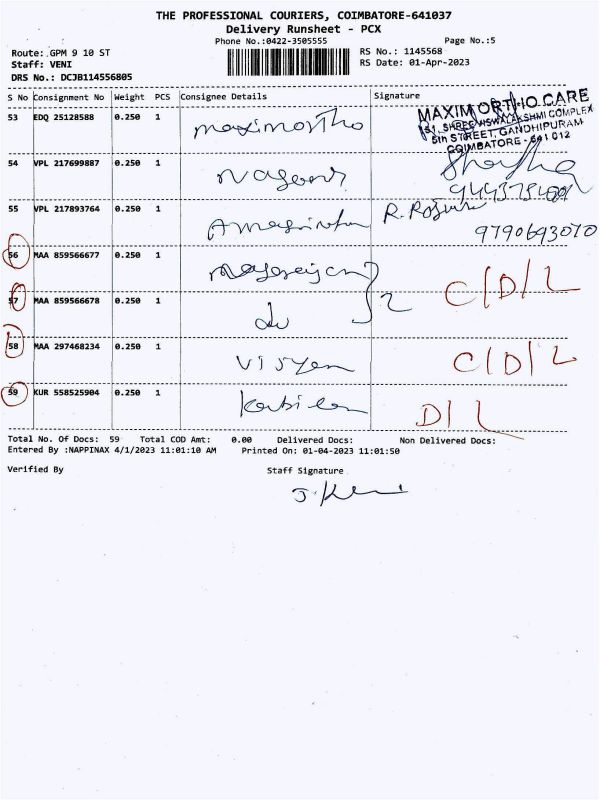 THE PROFESSIONAL COURIERS, COIMBATORE-641037
Delivery Runsheet - PCX
Phone No.:0422-3505555 Page No.:5
Route: GPM 9 10 ST RS No.: 1145568
Staff: VENI RS Date: 01-Apr-2023
DRS No.: DCJB114556805
S No Consignment No Weight PCS Consignee Details Signature
53 EDQ 25128588 0.250 1 maximortho MAXIM ORTHO CARE
151, SHREE VISWALAKSHMI COMPLEX
5th STREET, GANDHIPURAM
COIMBATORE - 641 012
54 VPL 217699887 0.250 1
55 VPL 217893764 0.250 1 R.
9790693070
56 MAA 859566677 0.250 1 2 C/D/L
57 MAA 859566678 0.250 1 do
58 MAA 297468234 0.250 1 C/D/L
59 KUR 558525904 0.250 1 D/L
Total No. Of Docs: 59 Total COD Amt: 0.00 Delivered Docs: Non Delivered Docs:
Entered By :NAPPINAX 4/1/2023 11:01:10 AM Printed On: 01-04-2023 11:01:50
Verified By Staff Signature